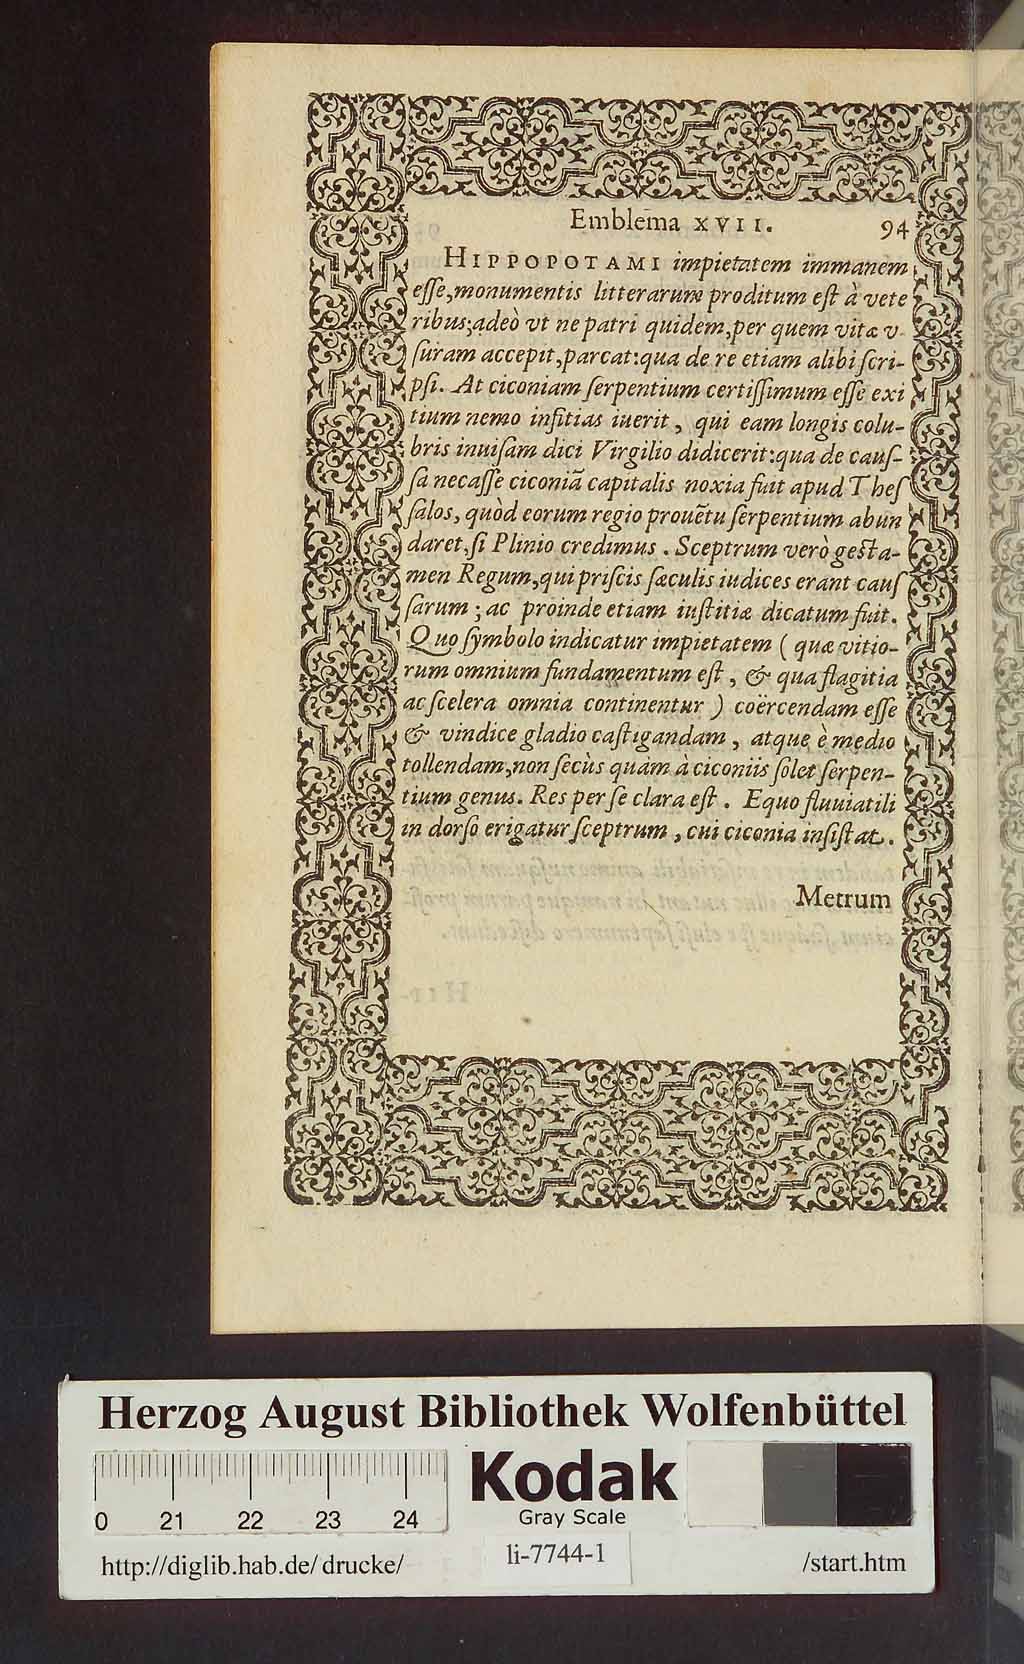 Emblema XVII. 94
HIPPOPOTAMI impietatem immanem
eſſe,monumentis litterarum proditum eſt à vete
ribus;adeò vt ne patri quidem,per quem vitæ v
ſuram accepit,parcat:qua de re etiam alibi ſcri-
pſi. At ciconiam ſerpentium certiſſimum eſſe exi
tium nemo infitias iuerit, qui eam longis colu-
bris inuiſam dici Virgilio didicerit:qua de cauſ-
ſa necaſſe ciconiã capitalis noxia fuit apud Theſ
ſalos, quòd eorum regio prouẽtu ſerpentium abun
daret,ſi Plinio credimus. Sceptrum verò geſta-
men Regum,qui priſcis ſæculis iudices erant cauſ
ſarum; ac proinde etiam iuſtitiæ dicatum fuit.
Quo ſymbolo indicatur impietatem (quæ vitio-
rum omnium fundamentum eſt, & qua flagitia
ac ſcelera omnia continentur) coërcendam eſſe
& vindice gladio caſtigandam, atque è medio
tollendam,non ſecùs quàm à ciconiis ſolet ſerpen-
tium genus. Res per ſe clara eſt. Equo fluuiatili
in dorſo erigatur ſceptrum, cui ciconia inſiſtat.
Metrum
Herzog August Bibliothek Wolfenbüttel
Kodak
Gray Scale
0 21 22 23 24
http://diglib.hab.de/drucke/ li-7744-1 /start.htm